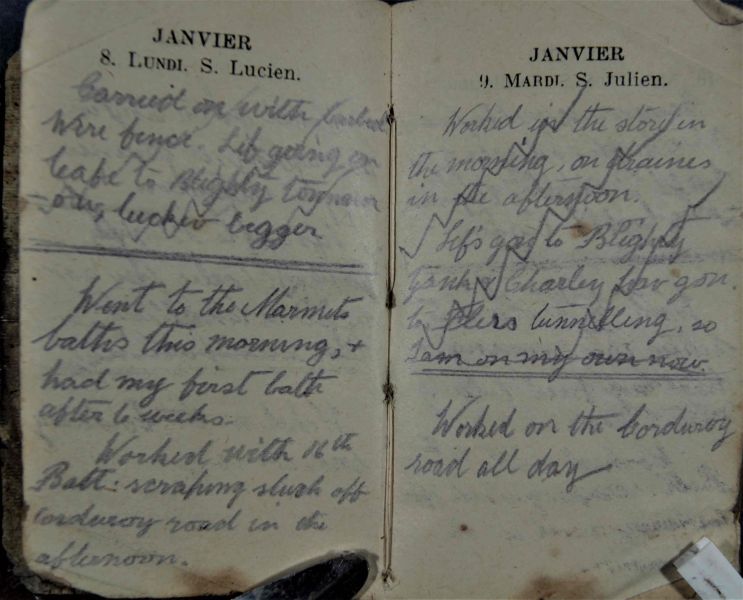 JANVIER
8. LUNDI. S. Lucien.
Carried on with barbed
wire fence. Lif going on
leafe to Blighty tommor
-ow, lucker begger
Went to the Marmets
baths this morning, +
had my first bath
after 6 weeks.
Worked with 16th
Batt: scraping slush off
corduroy road in the
afternoon.
JANVIER
9. MARDI. S. Julien.
Worked in the store in
the morning, on draines
in the afternoon.
Lif's gon to Blighty
& Charley gon
to Flers tunnelling, so
I am on my own now.
Worked on the Corduroy
road all day